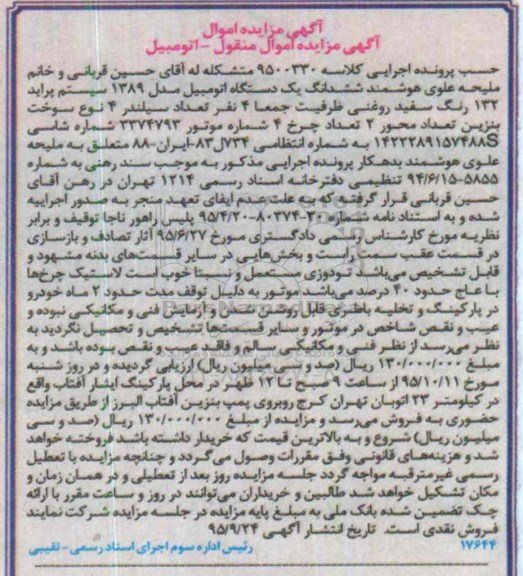 آگهی مزایده اموال
آگهی مزایده اموال منقول - اتومبیل
حسب پرونده اجرایی کلاسه ۹۵۰۰۳۳۰ متشکله له آقای حسین قربانی و خانم
ملیحه علوی هوشمند ششدانگ یک دستگاه اتومبیل مدل ۱۳۸۹ سیستم پراید
۱۳۲ رنگ سفید روغنی ظرفیت جمعا ۴ نفر تعداد سیلندر ۴ نوع سوخت
بنزین تعداد محور ۲ تعداد چرخ ۴ شماره موتور ۳۳۷۴۷۹۳ شماره شاسی
S۱۴۲۲۲۸۹۱۵۷۴۸۸ به شماره انتظامی ۷۳۴ل۸۳-ایران-۸۸ متعلق به ملیحه
علوی هوشمند بدهکار پرونده اجرایی مذکور به موجب سند رهنی به شماره
۵۸۵۵-۹۴/۶/۱۵ تنظیمی دفترخانه اسناد رسمی ۱۲۱۴ تهران در رهن آقای
حسین قربانی قرار گرفته که به علت عدم ایفای تعهد منجر به صدور اجراییه
شده و به استناد نامه شماره ۲۰-۸۰۳۷۴-۹۵/۴/۲۰ پلیس راهور ناجا توقیف و برابر
نظریه مورخ کارشناس رسمی دادگستری مورخ ۹۵/۶/۲۷ آثار تصادف و بازسازی
در قسمت عقب سمت راست و بخش‌هایی در سایر قسمت‌های بدنه مشهود و
قابل تشخیص می‌باشد تودوزی مستعمل و نسبتا خوب است لاستیک چرخ‌ها
با عاج حدود ۴۰ درصد می‌باشد موتور به دلیل توقف مدت حدود ۲ ماه خودرو
در پارکینگ و تخلیه باطری قابل روشن شدن و آزمایش فنی و مکانیکی نبوده و
عیب و نقص شاخص در موتور و سایر قسمت‌ها تشخیص و تحصیل نگردید به
نظر می‌رسد از نظر فنی و مکانیکی سالم و فاقد عیب و نقص بوده باشد و به
مبلغ ۱۳۰/۰۰۰/۰۰۰ ریال (صد و سی میلیون ریال) ارزیابی گردیده و در روز شنبه
مورخ ۹۵/۱۰/۱۱ از ساعت ۹ صبح تا ۱۲ ظهر در محل پارکینگ ایثار آفتاب واقع
در کیلومتر ۲۳ اتوبان تهران کرج روبروی پمپ بنزین آفتاب البرز از طریق مزایده
حضوری به فروش می‌رسد و مزایده از مبلغ ۱۳۰/۰۰۰/۰۰۰ ریال (صد و سی
میلیون ریال) شروع و به بالاترین قیمت که خریدار داشته باشد فروخته خواهد
شد و هزینه‌های قانونی وفق مقررات وصول می‌گردد و چنانچه مزایده با تعطیل
رسمی غیرمترقبه مواجه گردد جلسه مزایده روز بعد از تعطیلی و در همان زمان و
مکان تشکیل خواهد شد طالبین و خریداران می‌توانند در روز و ساعت مقرر با ارائه
چک تضمین شده بانک ملی به مبلغ پایه مزایده در جلسه مزایده شرکت نمایند
فروش نقدی است. تاریخ انتشار آگهی ۹۵/۹/۲۴
۱۷۶۴۴ رئیس اداره سوم اجرای اسناد رسمی - نقیبی